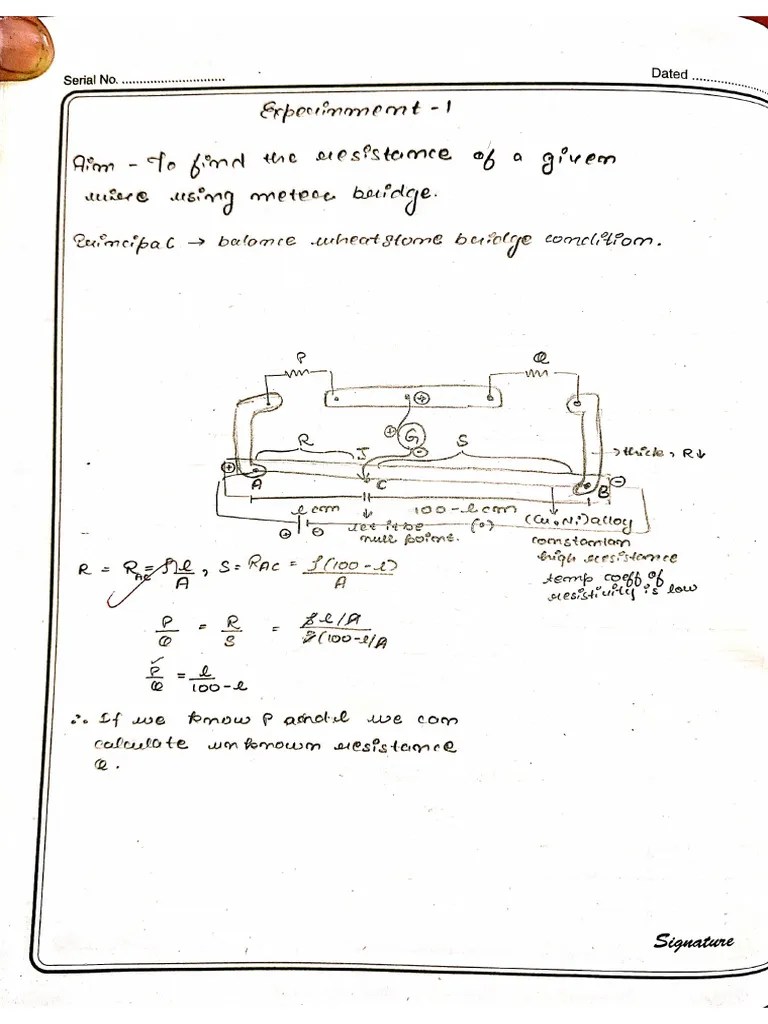 Serial No. ............................
Dated ......................
Experinment - 1
Aim - To find the resistance of a given
wire using meter bridge.
Principal → balance wheatstone bridge condition.
P
Q
(+)
(+) G
(-)
R
J
S
→ thick, R↓
(+)
A
C
B
(-)
l cm
100 - l cm
(+) (-)
let it be
null point.
(•)
(Cu, Ni) alloy
constantan
high resistance
temp coeff of
resistivity is low
R = R_AC = ρl/A , S = R_AC = ρ(100 - l)/A
P/Q = R/S = ρl/A / ρ(100 - l/A
P/Q = l/100 - l
∴ If we know P and l we can
calculate unknown resistance
Q.
Signature